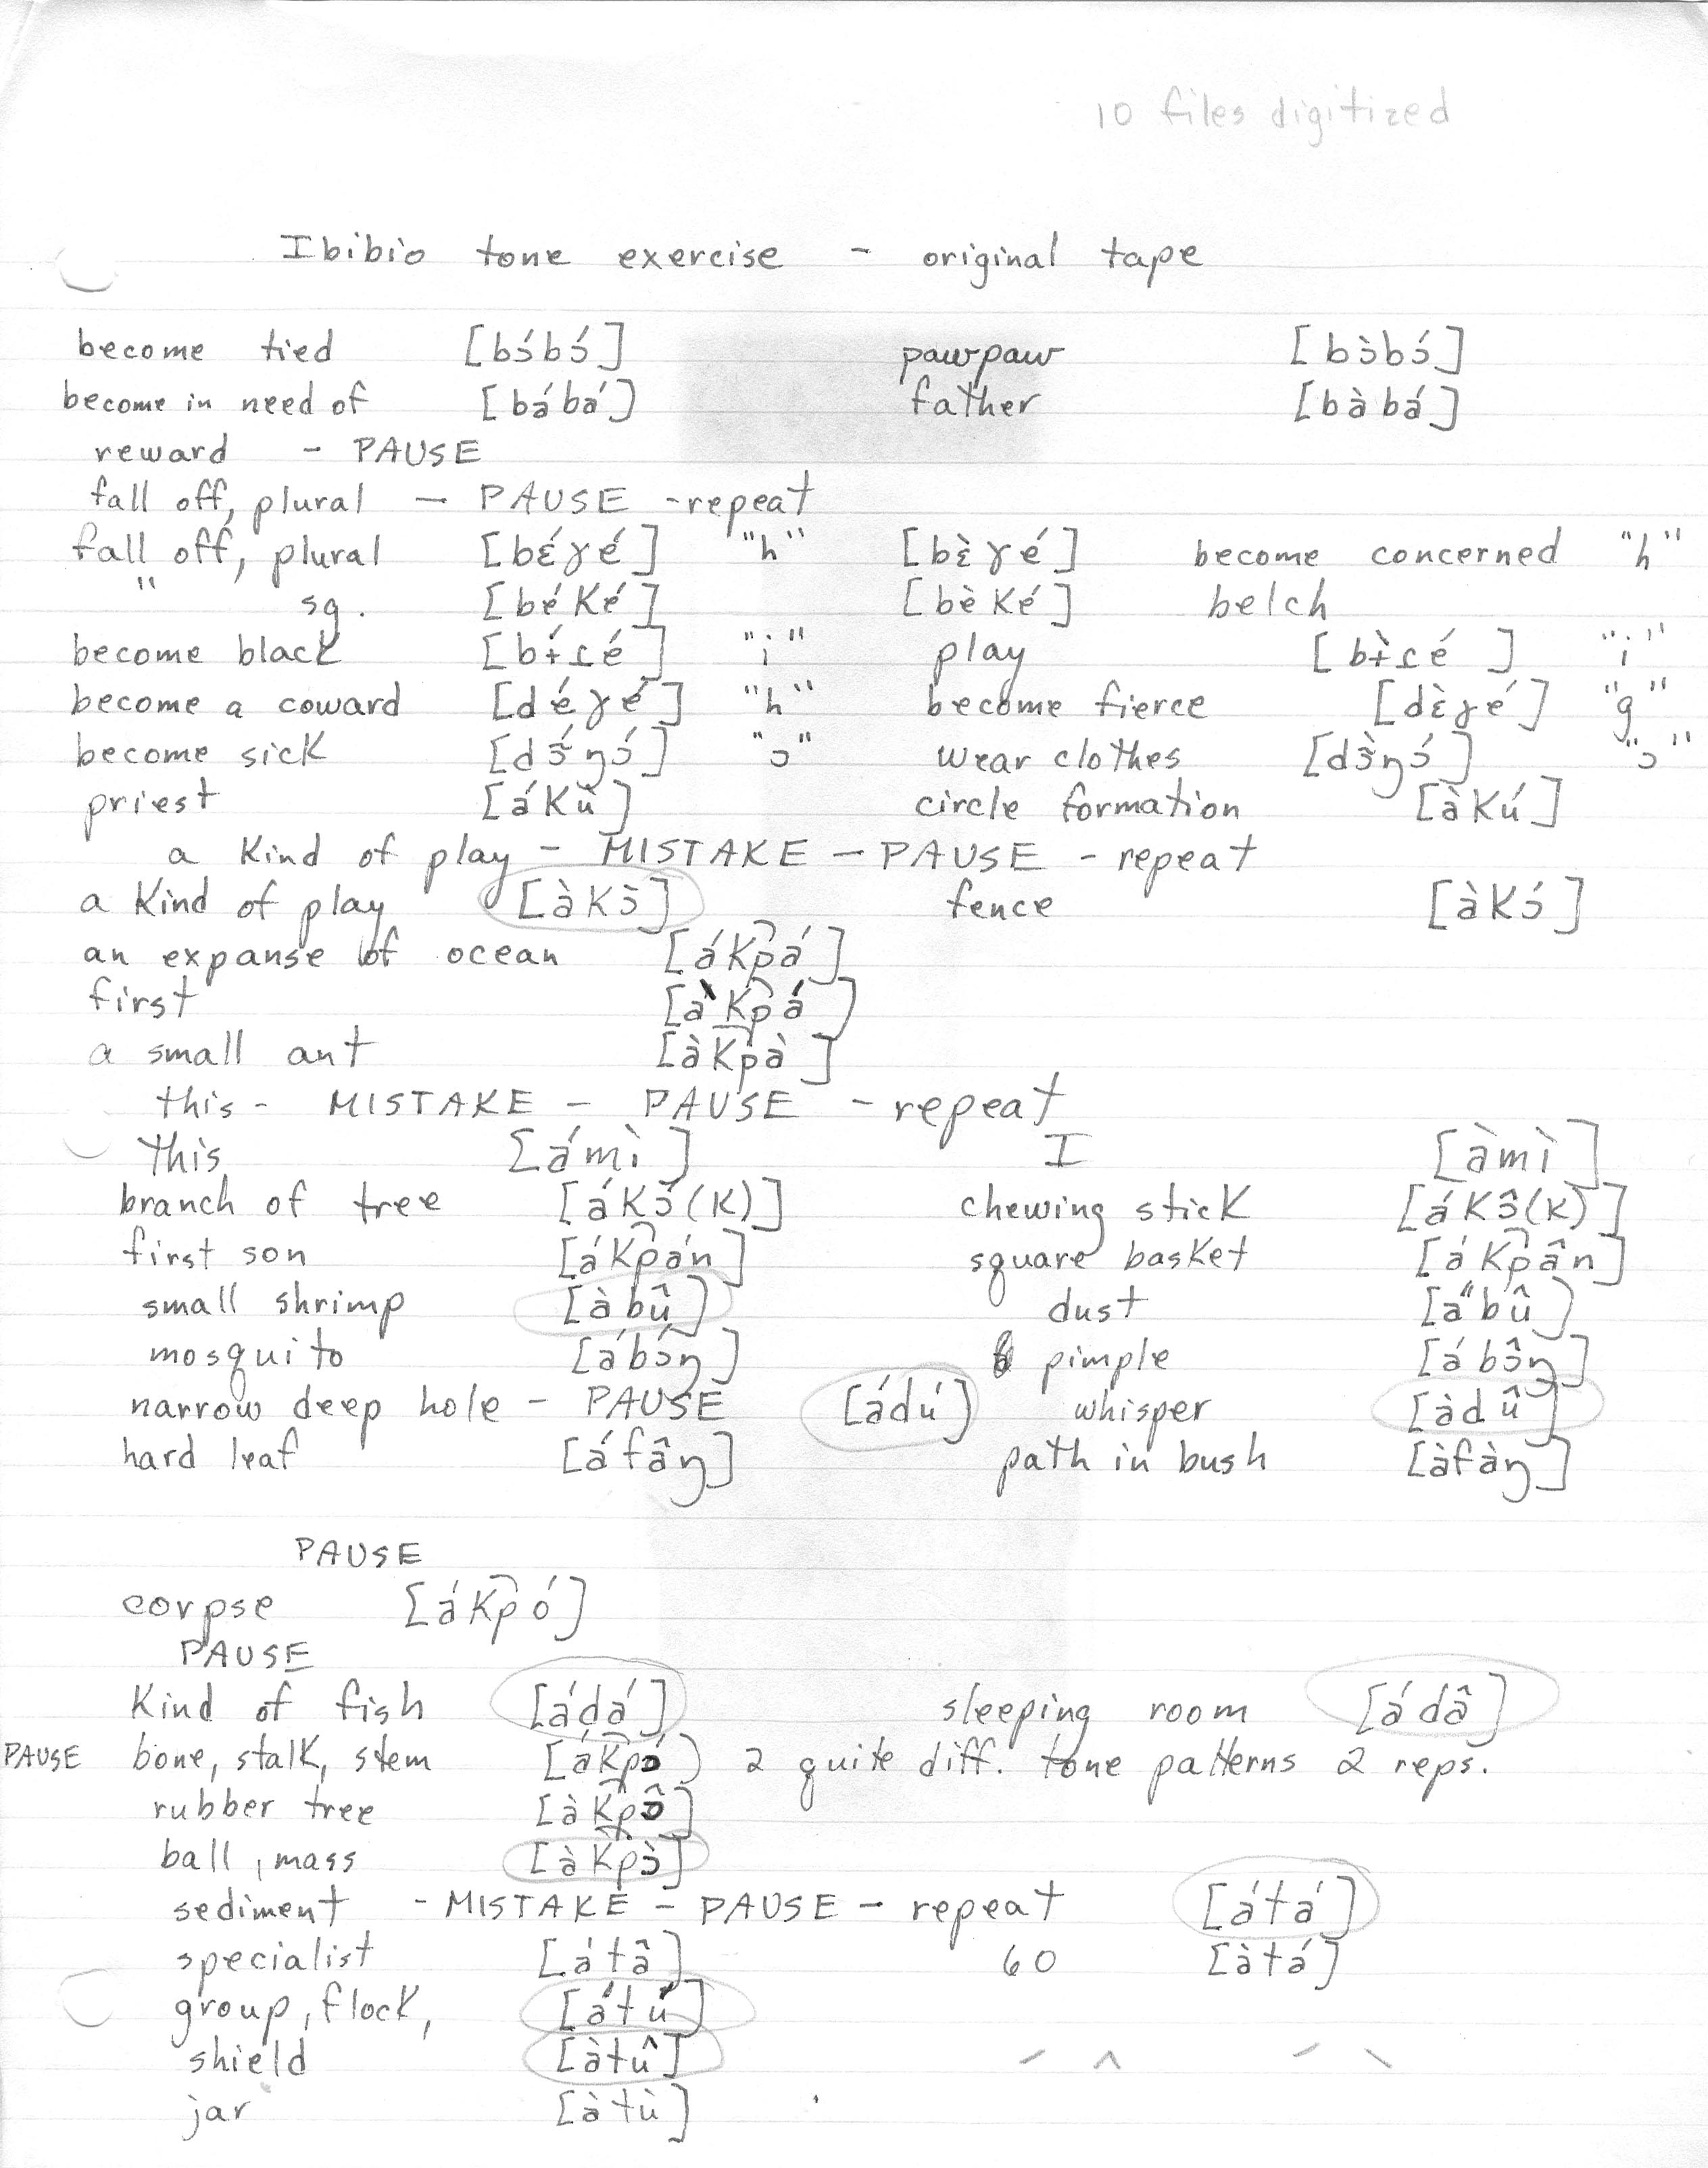 10 files digitized
Ibibio tone exercise - original tape
become tied [bɔ́bɔ́] pawpaw [bɔ̀bɔ́]
become in need of [bábá] father [bàbá]
reward - PAUSE
fall off, plural - PAUSE - repeat
fall off, plural [bɛ́ɣé] "h" [bɛ̀ɣé] become concerned "h"
" sg. [béké] [bèké] belch
become black [bɨ́ɾé] "i" play [bɨ̀ɾé] "i"
become a coward [déɣé] "h" become fierce [dɛ̀ɣé] "g"
become sick [dɔ́ŋɔ́] "ɔ" wear clothes [dɔ̀ŋɔ́] "ɔ"
priest [ákù] circle formation [àkú]
a kind of play - MISTAKE - PAUSE - repeat
a kind of play [àkɔ̀] fence [àkɔ́]
an expanse of ocean [ák͡pá]
first [àk͡pá]
a small ant [àk͡pà]
this - MISTAKE - PAUSE - repeat
this [ámì] I [àmì]
branch of tree [ákɔ́(k)] chewing stick [ákɔ̂(k)]
first son [ák͡pán] square basket [ák͡pân]
small shrimp [àbû] dust [a̋bû]
mosquito [ábɔ́ŋ] pimple [ábɔ̂ŋ]
narrow deep hole - PAUSE [ádú] whisper [àdû]
hard leaf [áfâŋ] path in bush [àfàŋ]
PAUSE
corpse [ák͡pó]
PAUSE
kind of fish [ádá] sleeping room [ádâ]
PAUSE bone, stalk, stem [ák͡pɔ́] 2 quite diff. tone patterns 2 reps.
rubber tree [àk͡pɔ̂]
ball, mass [àk͡pɔ̀]
sediment - MISTAKE - PAUSE - repeat [átá]
specialist [átâ] 60 [àtá]
group, flock, [átú]
shield [àtû] ˊ ˆ ˊ ˋ
jar [àtù]